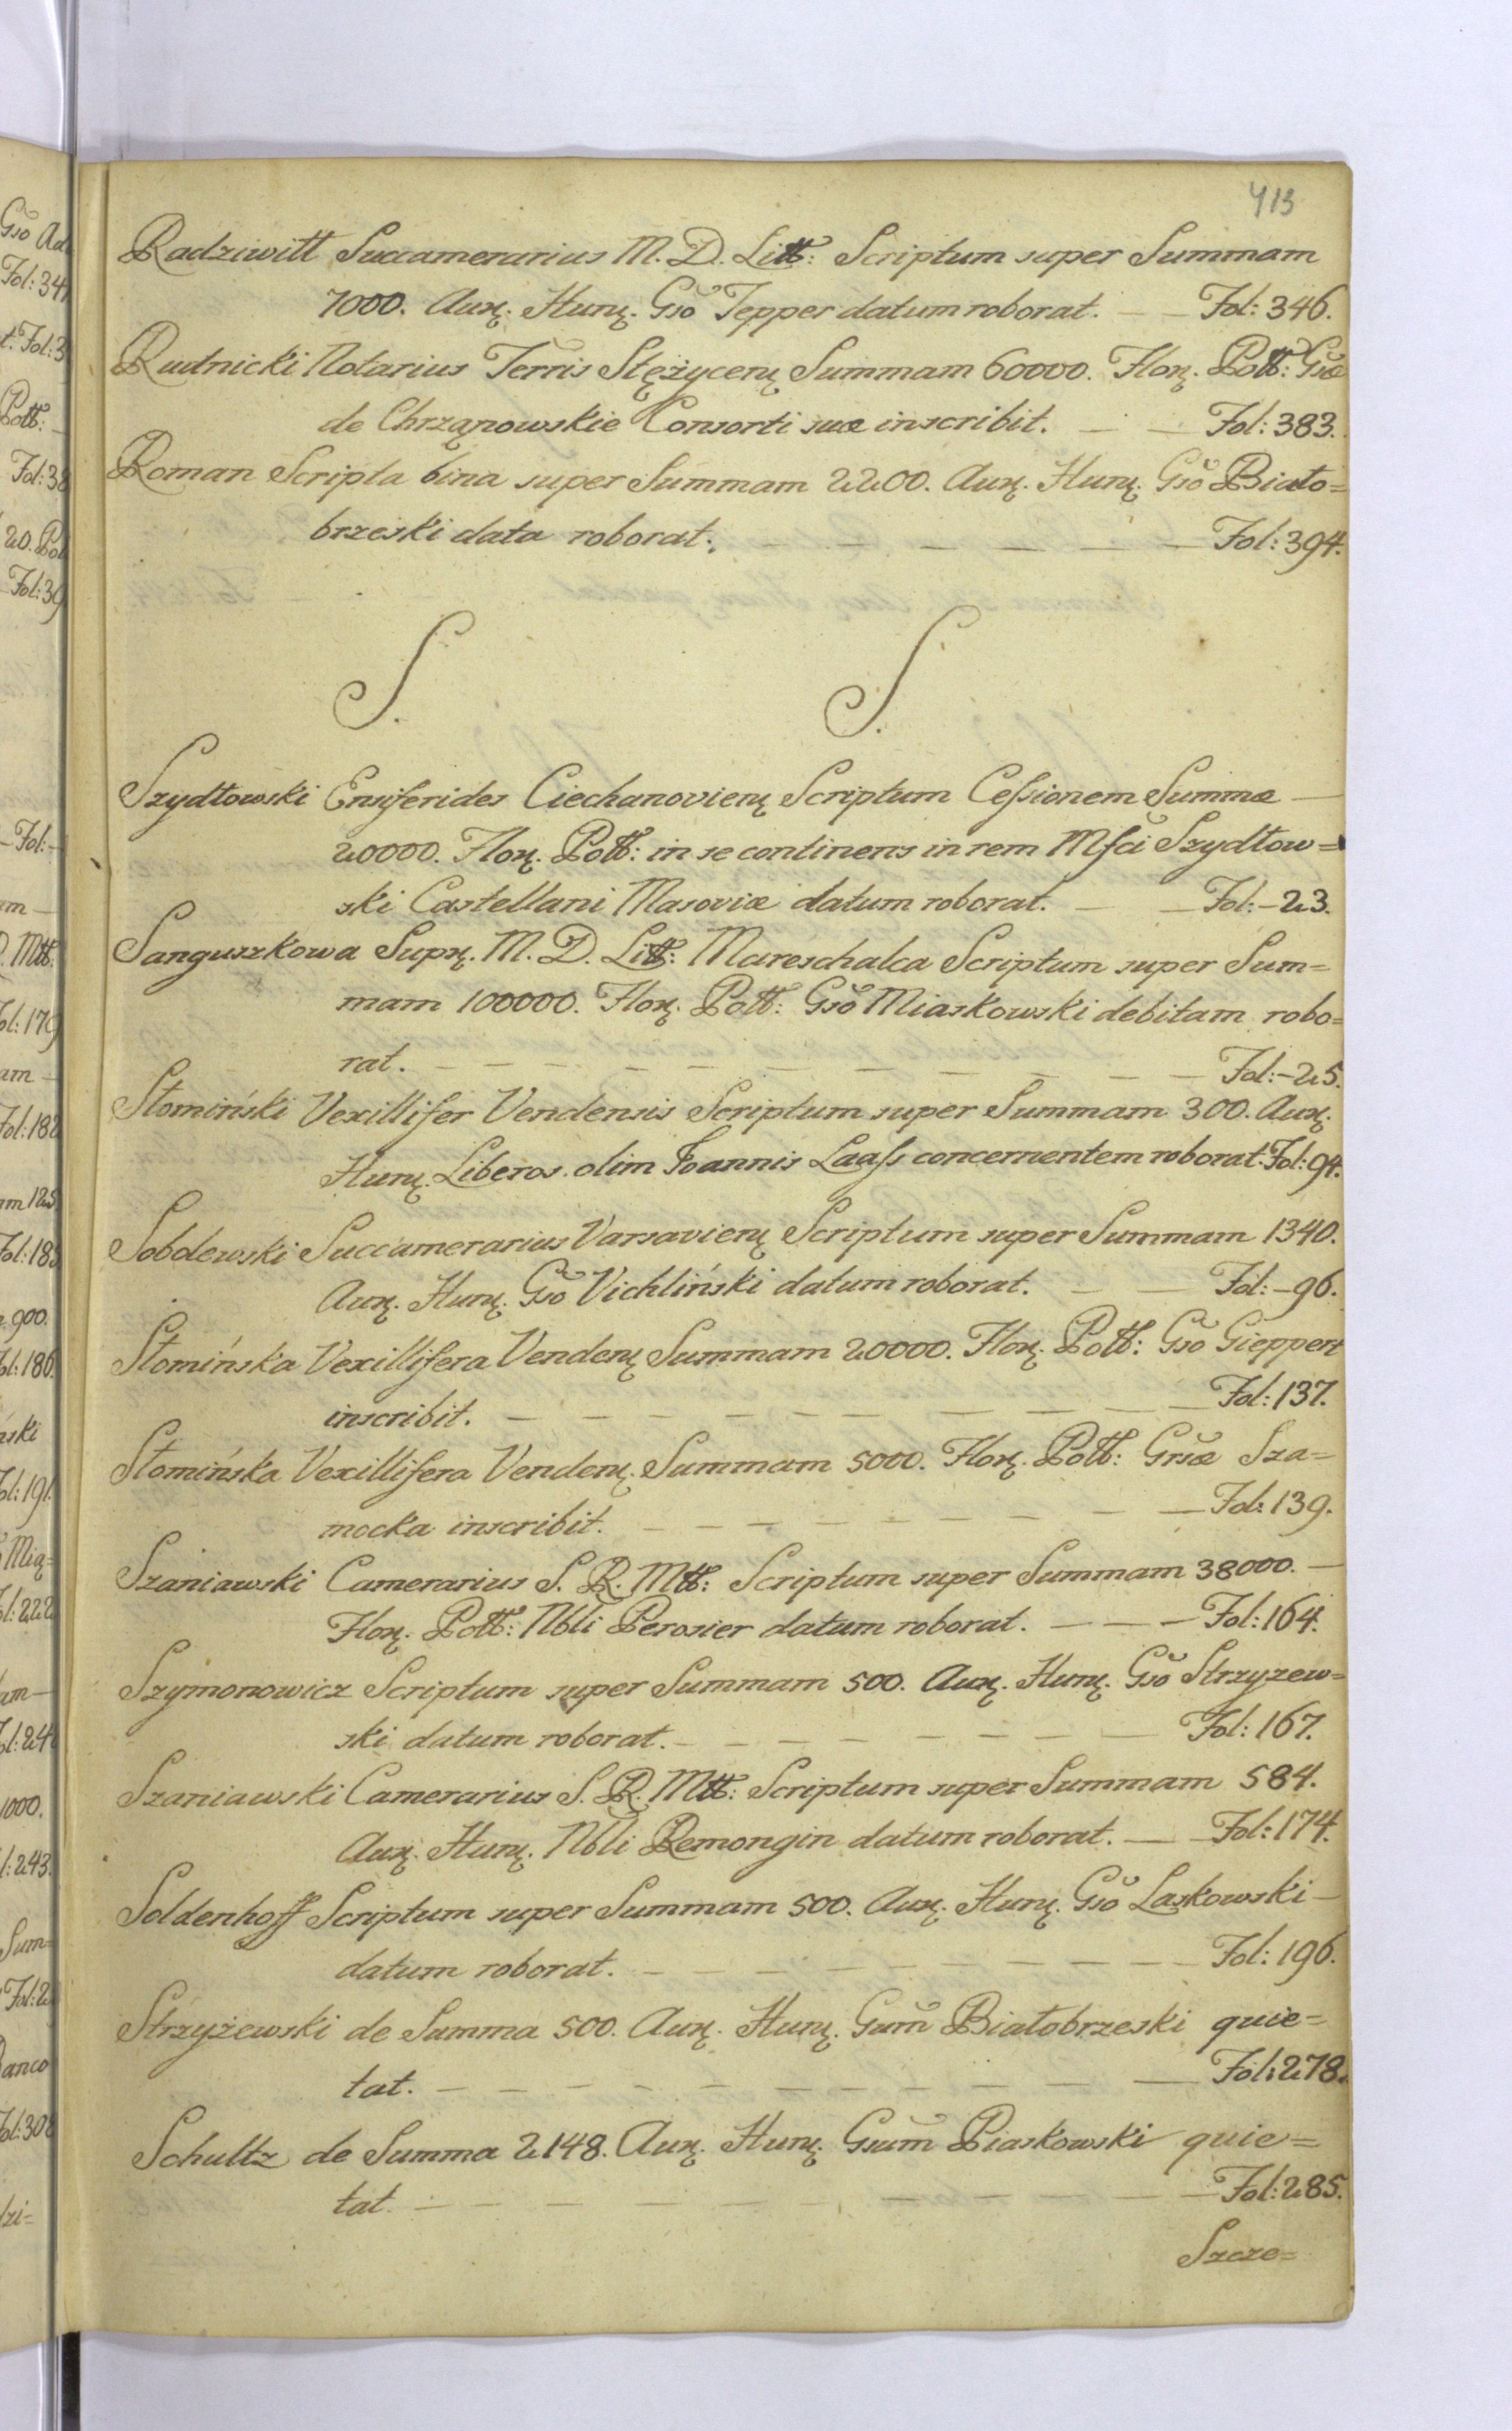 413
Radziwiłł Succamerarius M. D. Litt: Scriptum super Summam
7000. Aur: Hung: Gso Tepper datum roborat. — Fol: 346.
Rudnicki Notarius Terris Stężycen: Summam 60000. Flor: Poll: Gsæ
de Chrząnowskie Consorti suæ inscribit. — — Fol: 383.
Roman Scripta bina super Summam 2200. Aur: Hun: Gso Biało=
brzeski data roborat. — — — — — Fol: 394.
S. S.
Szydłowski Ensiferides Ciechanovien: Scriptum Cessionem Summæ —
20000. Flor: Poll: in se continens in rem Msci Szydłow=
ski Castellani Masoviæ datum roborat. — — Fol:-23.
Sanguszkowa Supr: M. D. Litt: Mareschalca Scriptum super Sum=
mam 100000. Flor: Poll: Gso Miaskowski debitam robo=
rat. — — — — — — — — — — Fol:-25.
Słomiński Vexillifer Vendensis Scriptum super Summam 300. Aur:
Hun: Liberos olim Joannis Laass concernentem roborat. Fol: 94.
Sobolewski Succamerarius Varsavien: Scriptum super Summam 1340.
Aur: Hun: Gso Vichliński datum roborat. — — Fol:-96.
Słomińska Vexillifera Venden: Summam 20000. Flor: Poll: Gso Gieppert
inscribit. — — — — — — — — — Fol: 137.
Słomińska Vexillifera Venden: Summam 5000. Flor: Poll: Grsæ Sza=
mocka inscribit. — — — — — — — — Fol: 139.
Szaniawski Camerarius S. R. Mtt: Scriptum super Summam 38000. —
Flor: Poll: Nbli Perosier datum roborat. — — — Fol: 164.
Szymonowicz Scriptum super Summam 500. Aur: Hun: Gso Strzyzew=
ski datum roborat. — — — — — — — Fol: 167.
Szaniawski Camerarius S. R. Mtt: Scriptum super Summam 584.
Aur: Hun: Nbli Remongin datum roborat. — — Fol: 174.
Soldenhoff Scriptum super Summam 500. Aur: Hun: Gso Laskowski —
datum roborat. — — — — — — — — Fol: 196.
Strzyżewski de Summa 500. Aur: Hun: Gsum Białobrzeski quie=
tat. — — — — — — — — — — Fol: 278.
Schultz de Summa 2148. Aur: Hun: Gsum Piaskowski quie=
tat. — — — — — — — — Fol: 285.
Szcze=